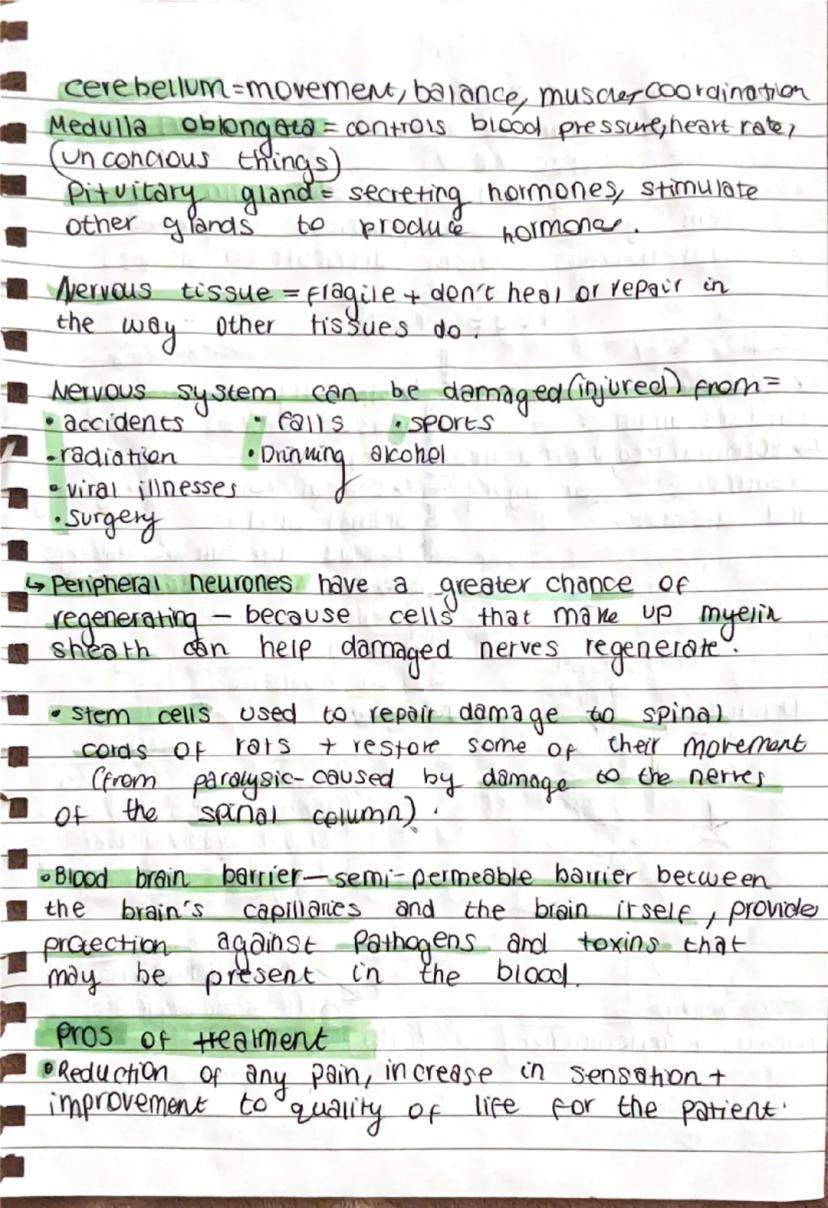 cerebellum = movement, balance, muscle coordination
Medulla oblongata = controls blood pressure, heart rate,
(unconcious things)
Pituitary gland = secreting hormones, stimulate
other glands to produce hormones.
Nervous tissue = fragile + don't heal or repair in
the way other tissues do.
Nervous system can be damaged (injured) from =
• accidents • falls • sports
• radiation • Drinking alcohol
• viral illnesses
• surgery
↳ Peripheral neurones have a greater chance of
regenerating – because cells that make up myelin
sheath can help damaged nerves regenerate.
• stem cells used to repair damage to spinal
cords of rats + restore some of their movement
(from paralysic - caused by damage to the nerves
of the spinal column).
• Blood brain barrier – semi-permeable barrier between
the brain's capillaries and the brain itself, provide
protection against pathogens and toxins that
may be present in the blood.
Pros of treatment
• Reduction of any pain, increase in sensation +
improvement to quality of life for the patient.